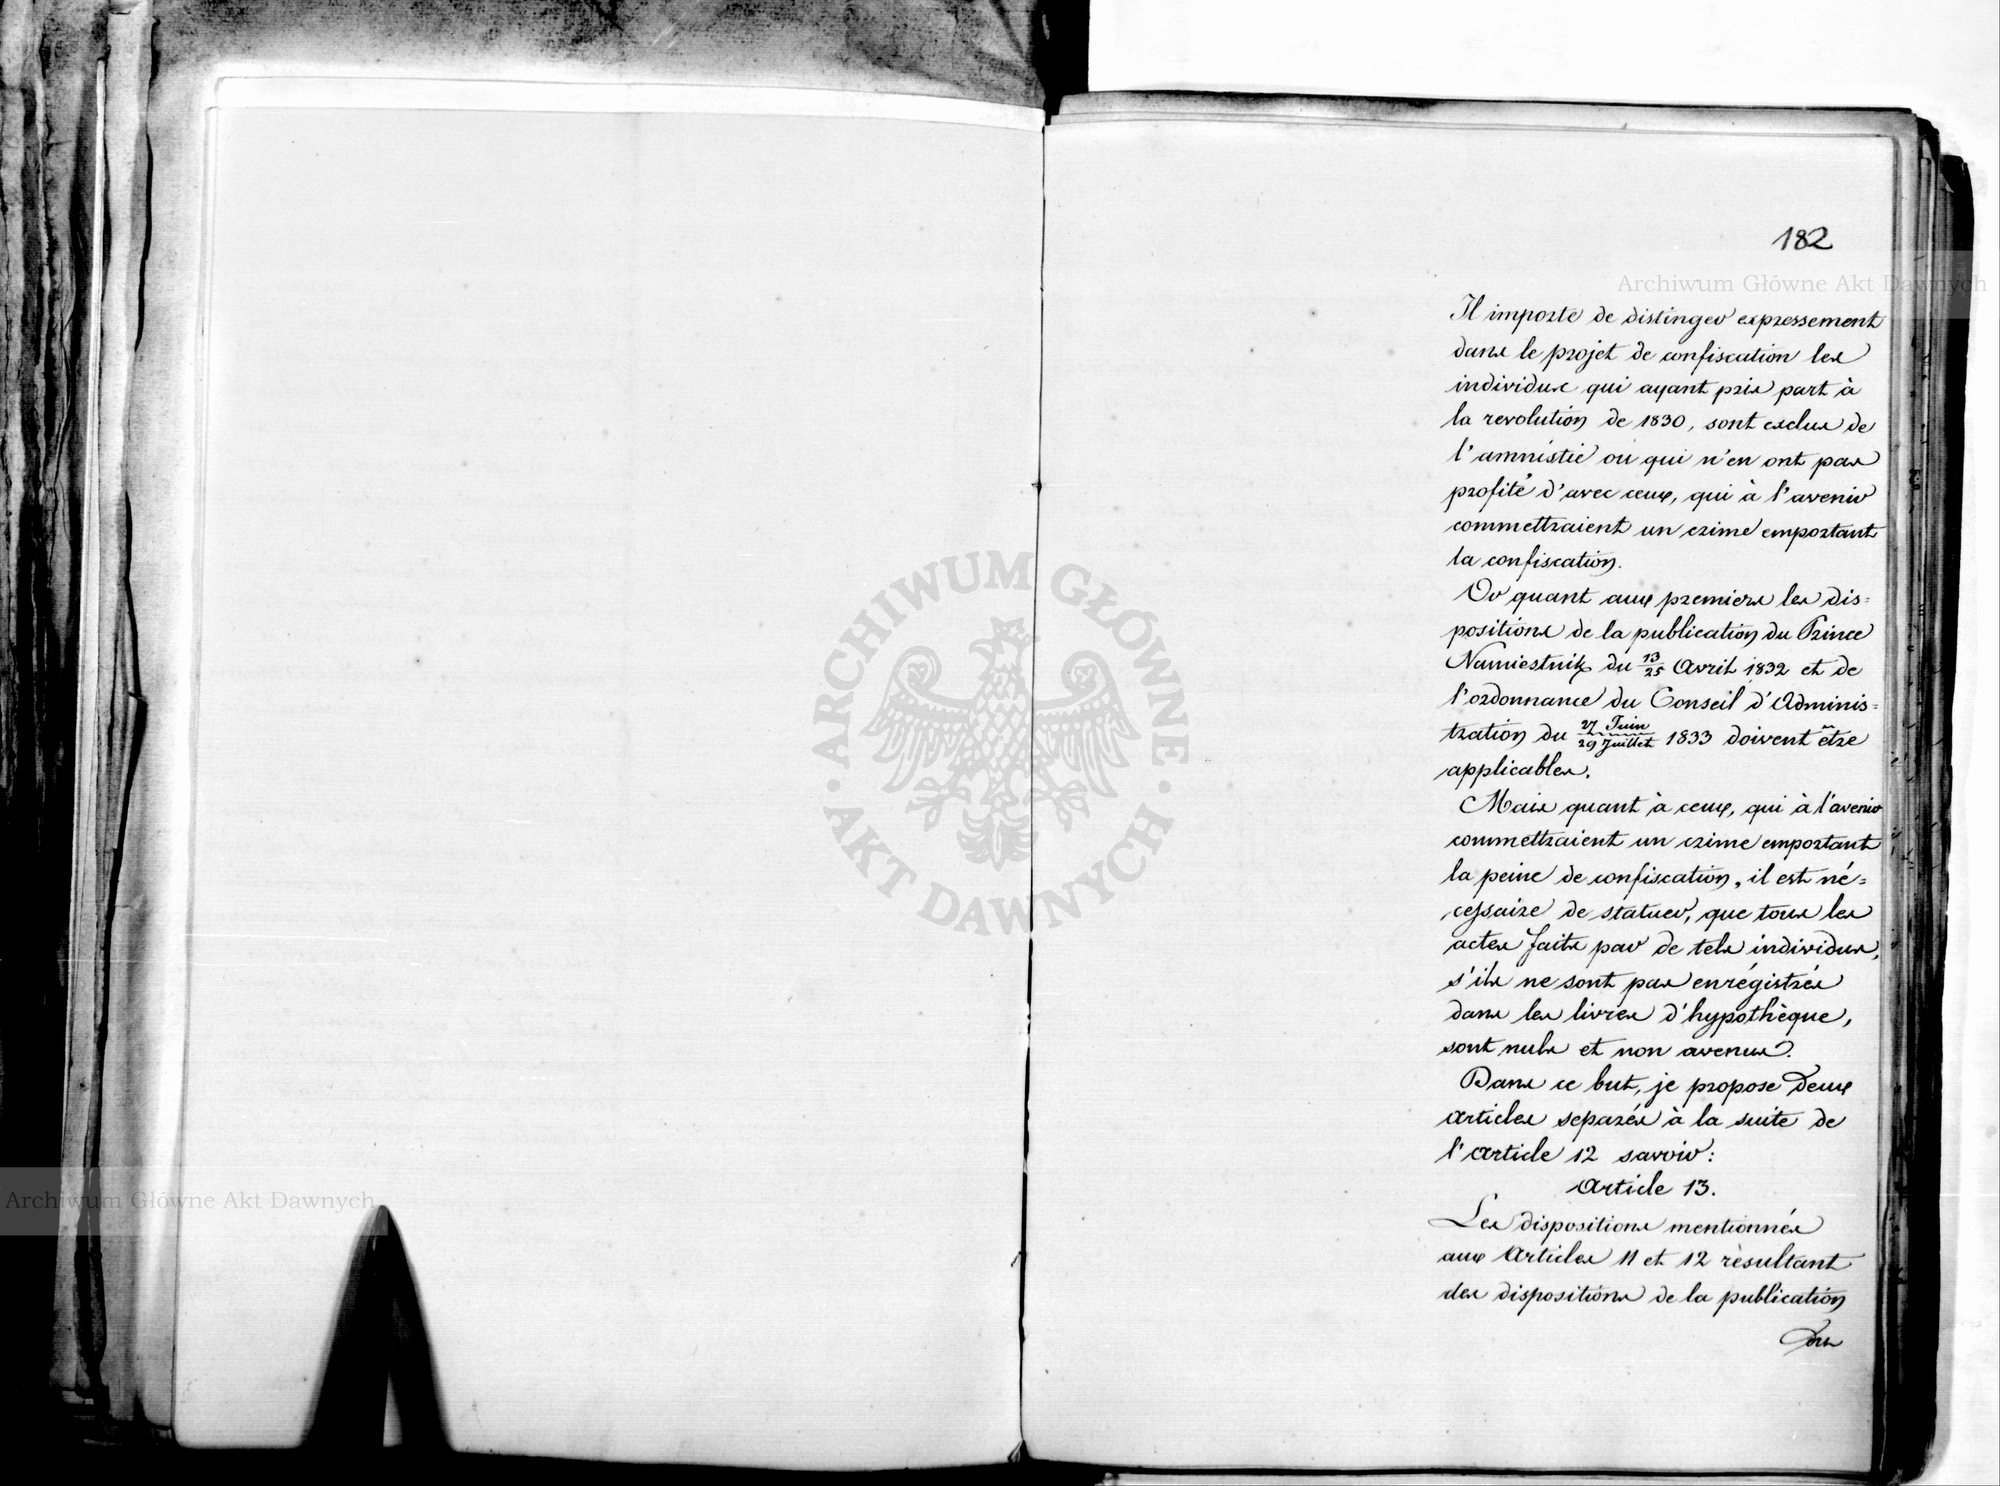 182
Il importe de distinger expressement
dans le projet de confiscation les
individus qui ayant pris part à
la revolution de 1830, sont exclus de
l'amnistie ou qui n'en ont pas
profité d'avec ceux, qui à l'avenir
commettraient un crime emportant
la confiscation.
Or quant aux premiers les dis=
positions de la publication du Prince
Namiestnik du 13/25 Avril 1832 et de
l'ordonnance du Conseil d'Adminis=
tration du 27 Juin/29 Juillet 1833 doivent être
applicables.
Mais quant à ceux, qui à l'avenir
commettraient un crime emportant
la peine de confiscation, il est né=
cessaire de statuer, que tous les
actes faits par de tels individus,
s'ils ne sont pas enrégistrés
dans les livres d'hypothèque,
sont nuls et non avenus.
Dans ce but, je propose deux
articles separés à la suite de
l'article 12 savoir:
Article 13.
Les dispositions mentionnés
aux Articles 11 et 12 résultant
des dispositions de la publication
du
Archiwum Główne Akt Dawnych
Archiwum Główne Akt Dawnych
ARCHIWUM GŁÓWNE
AKT DAWNYCH